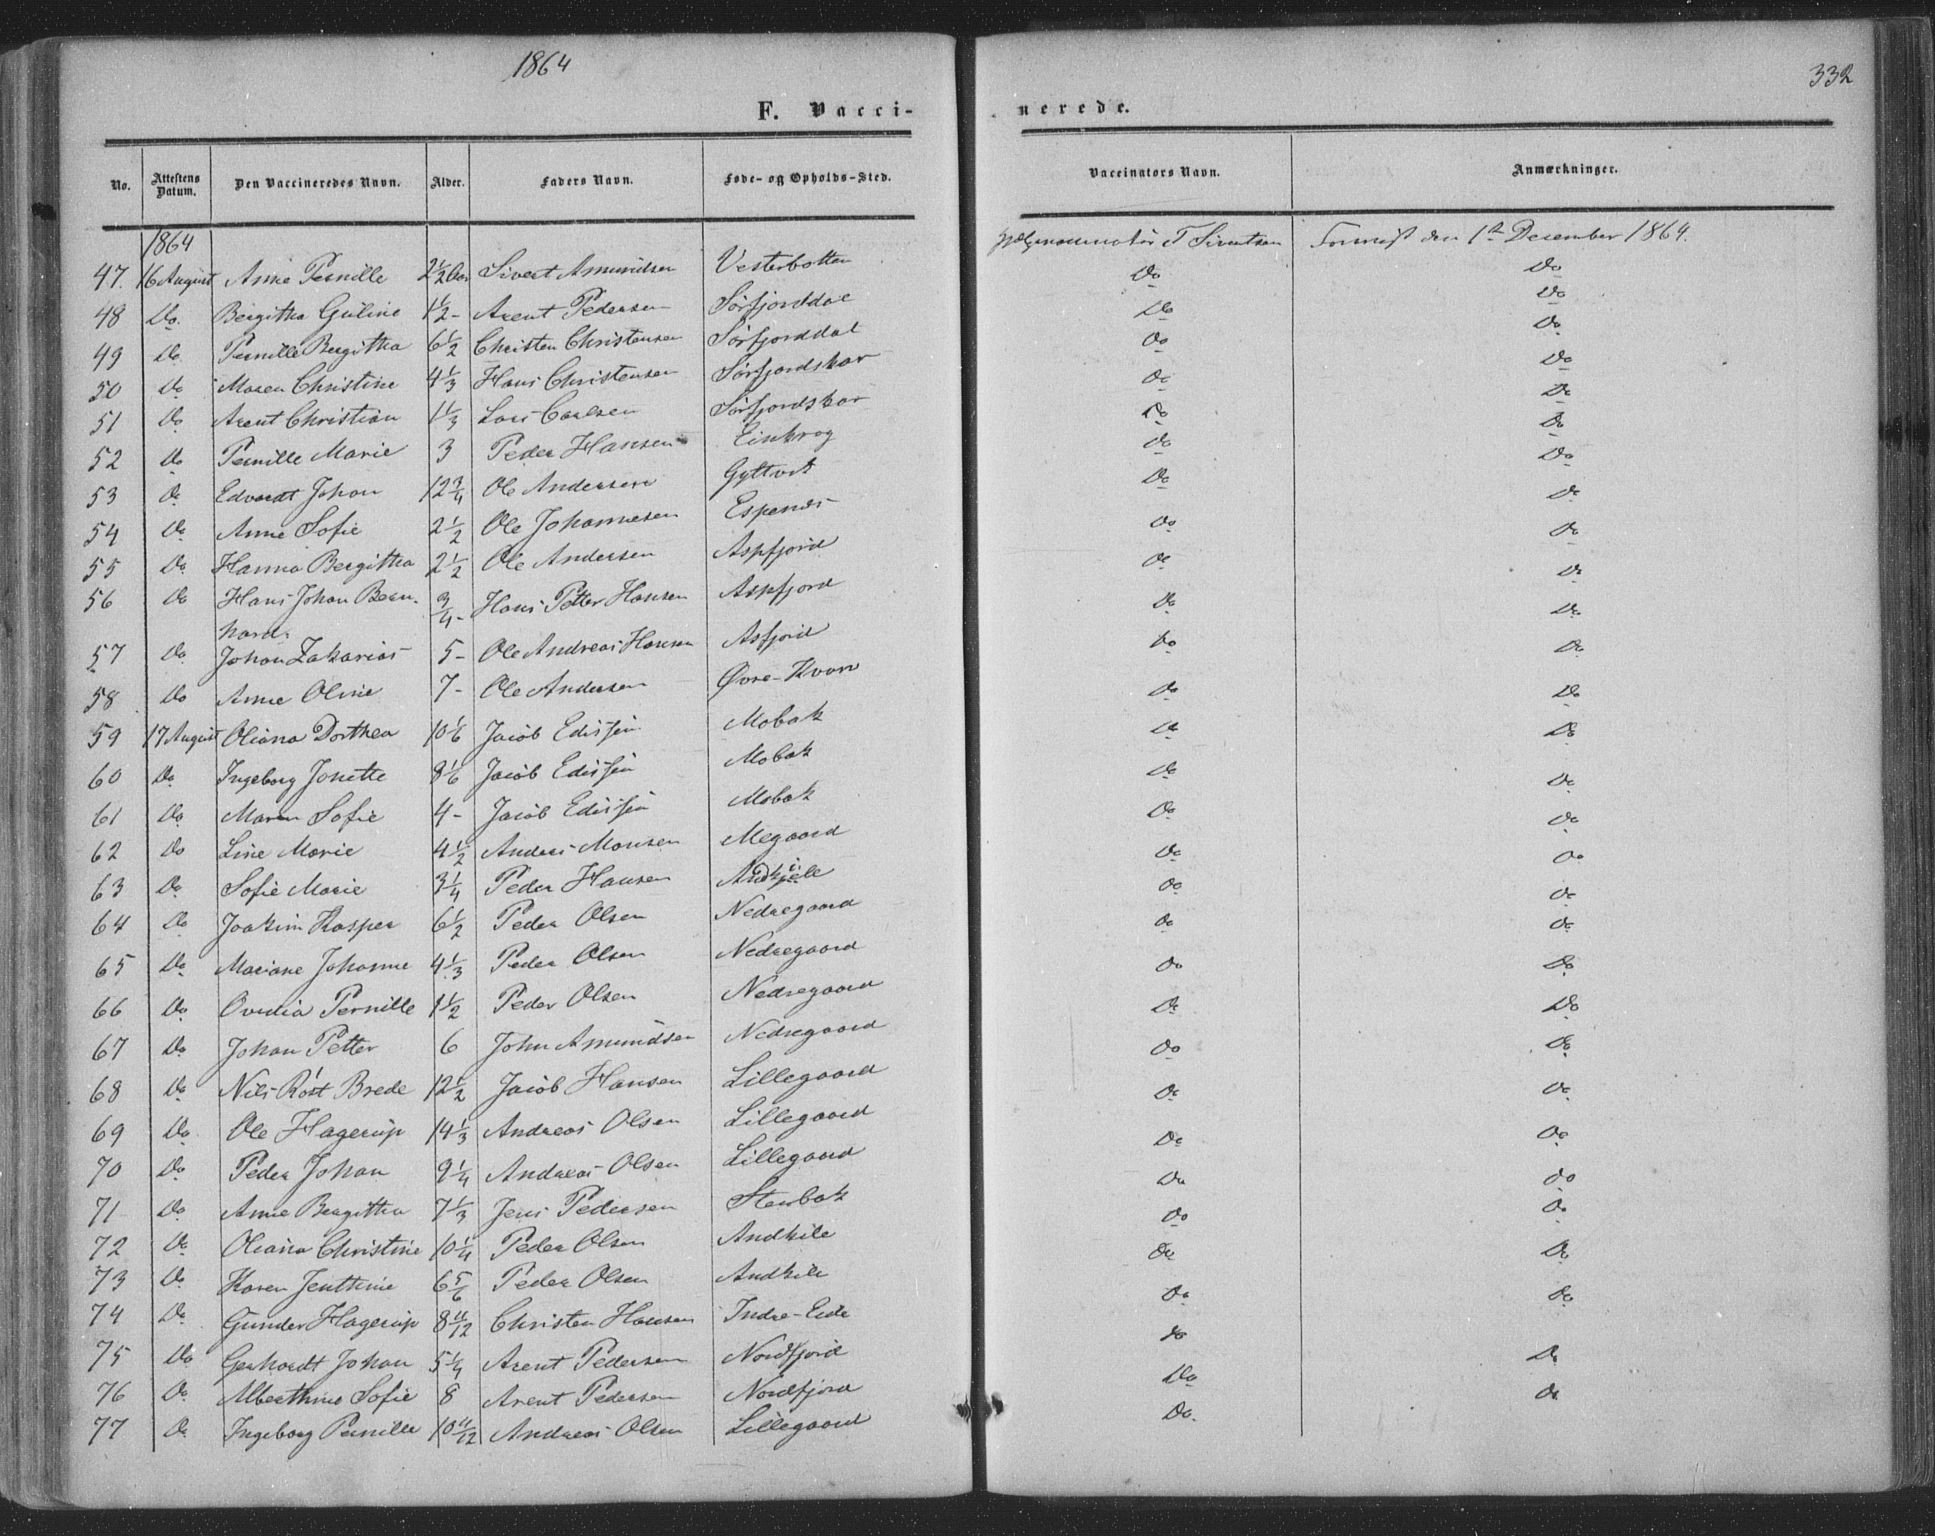 1864
332
F. Vacci-
nerede.
No. Attestens Datum. Den Vaccineredes Navn. Alder. Faders Navn. Føde- og Opholds-Sted. Vaccinators Navn. Anmærkninger.
1864
47. 16 August Anne Pernille 2 1/2 Aar Sivert Amundsen Vesterbotten T Sivertsen den 1te December 1864.
48 Do. Bergitha Guline 1 1/2 - Arent Pedersen Sørfjorddal Do Do
49 Do Pernille Bergitha 6 1/2 Christen Christensen Sørfjorddal Do Do
50 Do Maren Christine 4 1/3 Hans Christensen Sørfjordskar Do Do
51 Do Arent Christian 1 1/3 Lars Carlsen Sørfjordskar Do Do
52 Do Pernille Marie 3 Peder Hansen Einkrog Do Do
53 Do Edvardt Johan 12 3/4 Ole Andersen Gyltvik Do Do
54 Do Anne Sofie 2 1/2 Ole Johannesen Espenes Do Do
55 Do Hanna Bergitha 2 1/2 Ole Andersen Aspfjord Do Do
56 Do Hans Johan Bern- 3/4 - Hans Petter Hansen Aspfjord Do Do
hard.
57 Do Johan Zakarias 5 - Ole Andreas Hansen Asfjord Do Do
58 Do Anne Oline 7 - Ole Andersen Øvre-Kvarv Do Do
59 17 August Oliana Dorthea 10 1/6 Jacob Edissen Mobak Do Do
60 Do Ingeborg Jonette 8 1/6 Jacob Edissen Mobak Do Do
61 Do Maren Sofie 4 - Jacob Edissen Mobak Do Do
62 Do Line Marie 4 1/2 Anders Monsen Megaard Do Do
63 Do Sofie Marie 3 1/4 Peder Hansen Andkjile Do Do
64 Do Joakim Kasper 6 1/2 Peder Olsen Nedregaard Do Do
65 Do Mariane Johanne 4 1/3 Peder Olsen Nedregaard Do Do
66 Do Ovedia Pernille 1 1/2 Peder Olsen Nedregaard Do Do
67 Do Johan Petter 6 John Amundsen Nedregaard Do Do
68 Do Nils Röst Brede 12 1/2 Jacob Hansen Lillegaard Do Do
69 Do Ole Hagerup 14 1/3 Andreas Olsen Lillegaard Do Do
70 Do Peder Johan 9 1/4 Andreas Olsen Lillegaard Do Do
71 Do Anne Bergitha 7 1/3 Jens Pedersen Stenbak Do Do
72 Do Oliana Christine 10 1/4 Peder Olsen Andkile Do Do
73 Do Karen Jenthine 6 5/6 Peder Olsen Andkile Do Do
74 Do Gunder Hagerup 8 11/12 Christen Hansen Indre-Eide Do Do
75 Do Gerhardt Johan 5 1/4 Arent Pedersen Nordfjord Do Do
76 Do Alberthine Sofie 8 Arent Pedersen Nordfjord Do Do
77 Do Ingeborg Pernille 10 11/12 Andreas Olsen Lillegaard Do.